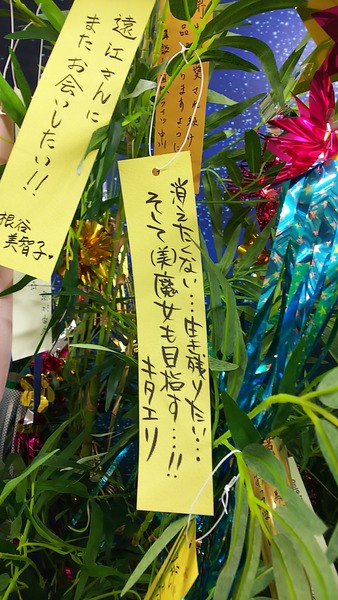 消えたくない…生き残りたい…
そして(美)魔女も目指す…!!
キタエリ
遠江さんに
またお会いしたい!!
根谷
美智子♥